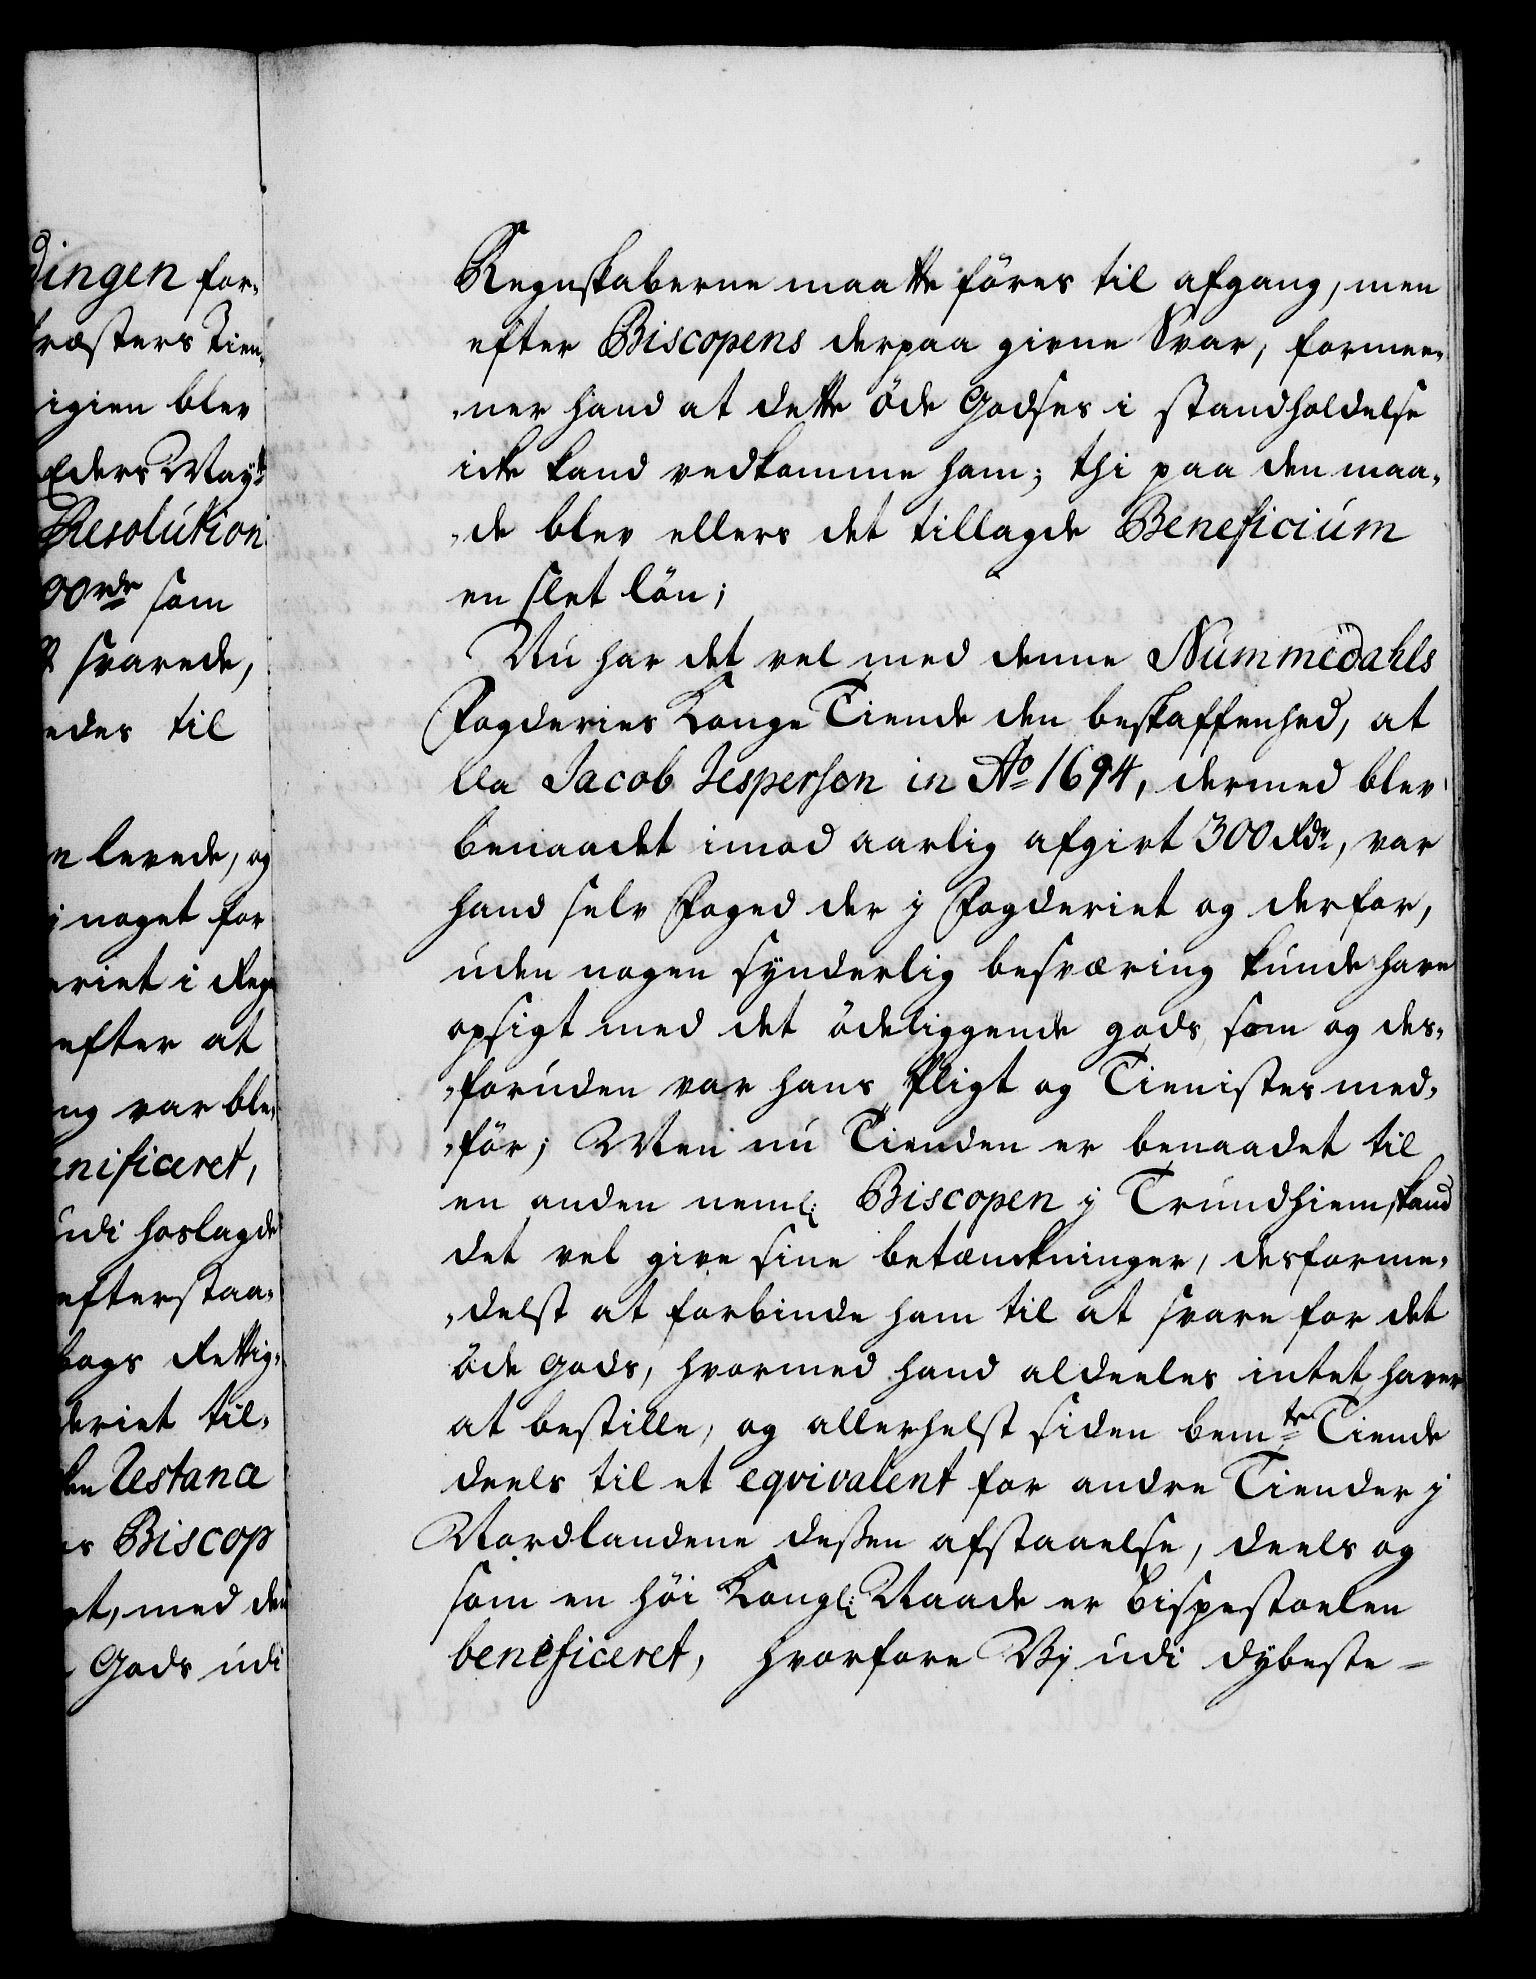 dingen for-
ræsters Tien-
igien blev
Eders Mayᵗˢ
Resolution
00 rdr som
svarede,
edes til
n levede, og
j noget for
eriet i Reg-
efter at
ng var ble-
nificeret,
udi hoslagde
efterstaa-
bogs Rettig-
deriet til-
den Vestana
es Biscop
et, med den
Gods udi
Regnskaberne maatte föres til afgang, men
efter Biscopens derpaa givne Svar, formee-
-ner hand at dette öde Godses i standholdelse
icke kand vedkomme ham; thi paa den maa-
-de blev ellers det tillagde Beneficium
en slet lön;
Nu har det vel med denne Nummedahls
Fogderies Konge Tiende den beskaffenhed, at
da Jacob Jespersen in Aº 1694, dermed blev
benaadet imod aarlig afgivt 300 Rdr, var
hand selv Foged der j Fogderiet og derfor,
uden nogen synderlig besværing kunde have
opsigt med det ödeliggende gods, som og des-
-foruden var hans Pligt og Tienistes med-
-för; Men nu Tienden er benaadet til
en anden neml: Biscopen j Trundhiem, kand
det vel give sine betænckninger, desforme-
-delst at forbinde ham til at svare for det
öde Gods, hvormed hand aldeeles intet haver
at bestille, og allerhelst siden bemte Tiende
deels til et eqvivalent for andre Tiender j
Nordlandene dessen afstaaelse, deels og
som en höi Kongl: Naade er Bispestoelen
beneficeret, hvorfore Vj udi dybeste-